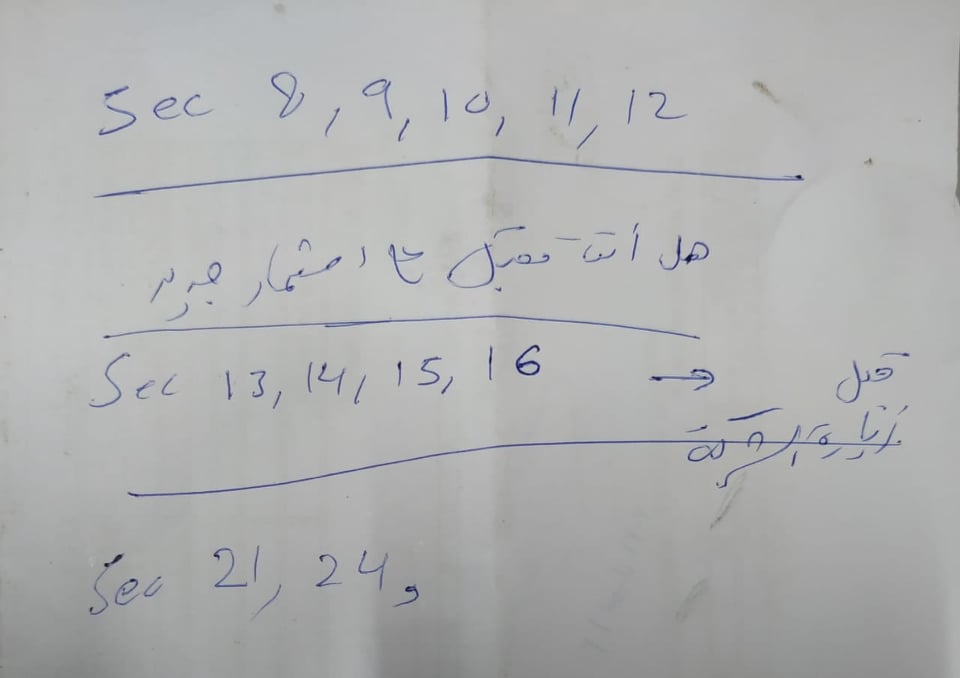 Sec 8, 9, 10, 11, 12
هل أنت مقبل ع استثمار جديد
Sec 13, 14, 15, 16 → قبل
زيارة الشركة
Sec 21, 24,